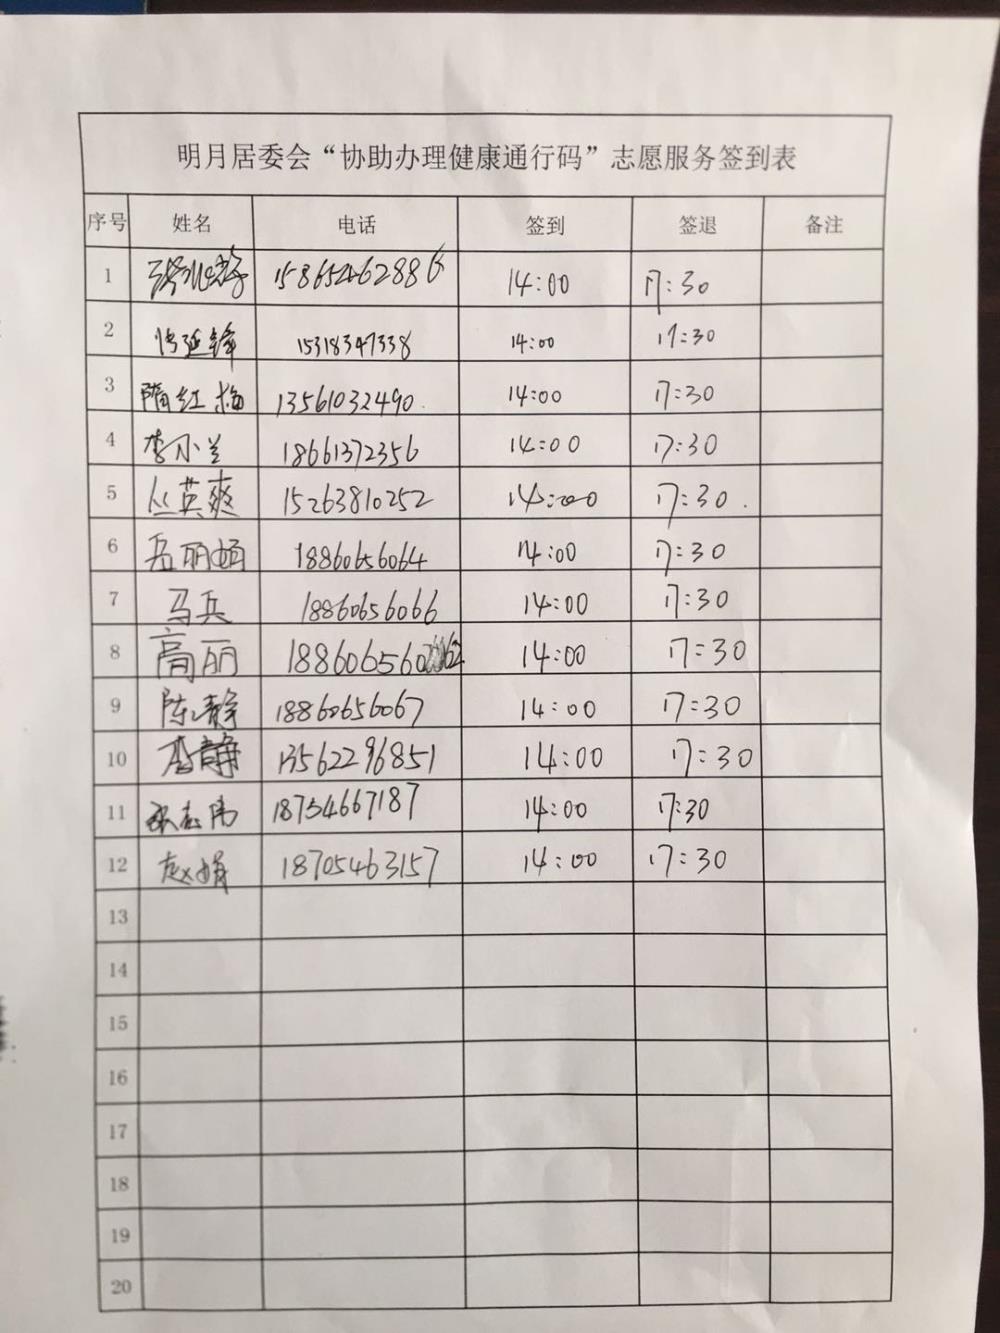 明月居委会“协助办理健康通行码”志愿服务签到表
序号 姓名 电话 签到 签退 备注
1 15865262886 14:00 17:30
2 延锋 15318347338 14:00 17:30
3 隋红梅 13561032490 14:00 17:30
4 李小兰 18661372356 14:00 17:30
5 丛英爽 15263810252 14:00 17:30
6 孟丽娟 18860656064 14:00 17:30
7 马兵 18860656066 14:00 17:30
8 高丽 18860656062 14:00 17:30
9 陈静 18860656067 14:00 17:30
10 李静 13562296851 14:00 17:30
11 张志伟 18754667187 14:00 17:30
12 赵娟 18705463157 14:00 17:30
13
14
15
16
17
18
19
20